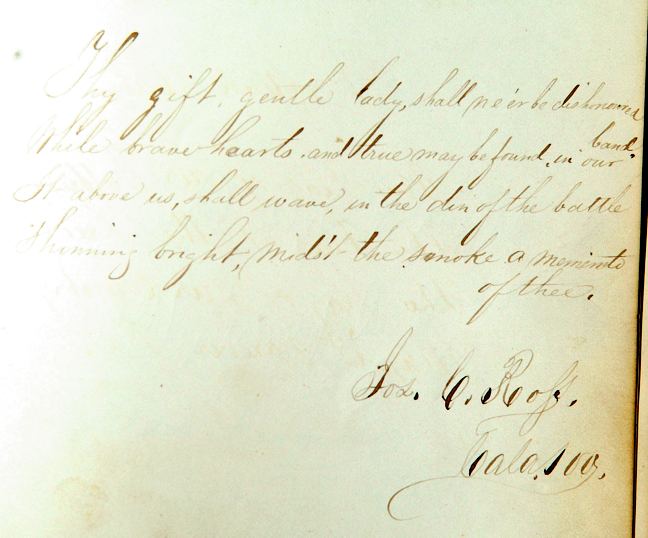 Thy gift, gentle lady, shall ne'er be dishonored
While brave hearts, and true may be found, in our band.
It above us, shall wave, in the din of the battle
Shinning bright, mid'st the smoke a memento
of thee.
Jos. C. Roff.